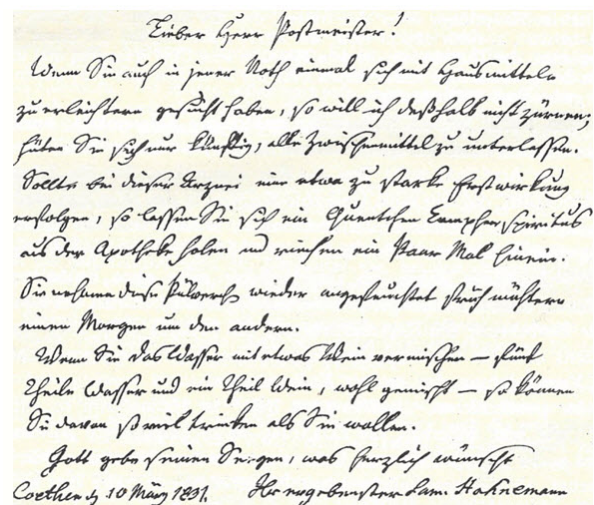 Lieber Herr Postmeister!
Wenn Sie auch in jener Noth einmal sich mit Hausmitteln
zu erleichtern gesucht haben, so will ich deßhalb nicht zürnen;
hüten Sie sich nur künftig, alle Zwischenmittel zu unterlassen.
Sollte bei dieser Arznei eine etwa zu starke Erstwirkung
erfolgen, so lassen Sie sich ein Quentchen Campherspiritus
aus der Apotheke holen und riechen ein Paar Mal hinein.
Sie nehmen diese Pülverch wieder angefeuchtet früh nüchtern
einen Morgen um den andern.
Wenn Sie das Wasser mit etwas Wein vermischen — fünf
Theile Wasser und ein Theil Wein, wohl gemischt — so können
Sie davon so viel trinken als Sie wollen.
Gott gebe seinen Segen, was herzlich wünscht
Coethen 10 März 1831. Ihr ergebenster Sam. Hahnemann